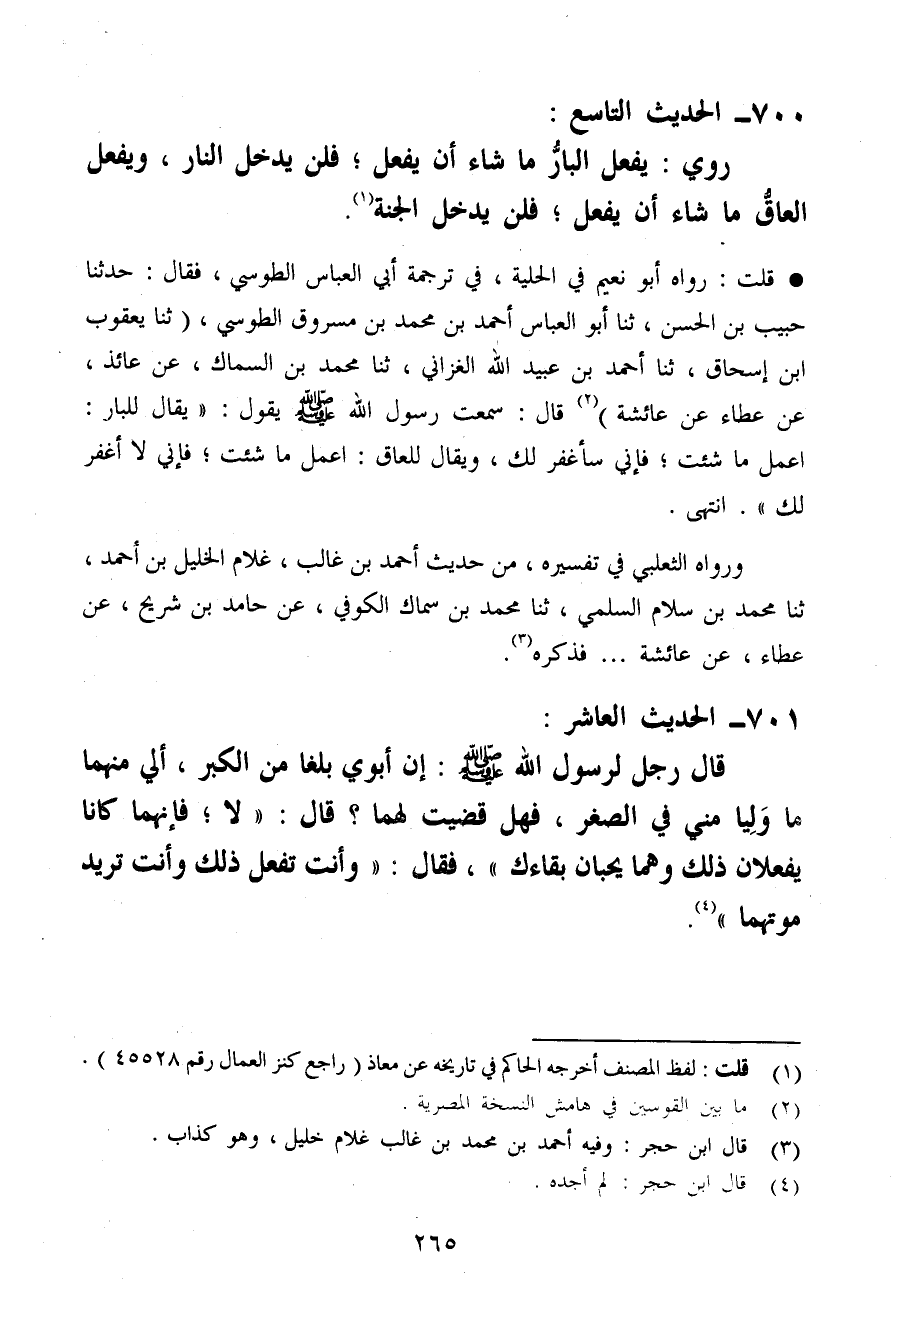 ٧٠٠ـ الحديث التاسع :
روي : يفعل البارُّ ما شاء أن يفعل ؛ فلن يدخل النار ، ويفعل
العاقُّ ما شاء أن يفعل ؛ فلن يدخل الجنة(١).
● قلت : رواه أبو نعيم في الحلية ، في ترجمة أبي العباس الطوسي ، فقال : حدثنا
حبيب بن الحسن ، ثنا أبو العباس أحمد بن محمد بن مسروق الطوسي ، ( ثنا يعقوب
ابن إسحاق ، ثنا أحمد بن عبيد الله الغزاني ، ثنا محمد بن السماك ، عن عائذ ،
عن عطاء عن عائشة )(٢) قال : سمعت رسول الله ﷺ يقول : « يقال للبار :
اعمل ما شئت ؛ فإني سأغفر لك ، ويقال للعاق : اعمل ما شئت ؛ فإني لا أغفر
لك » . انتهى .
ورواه الثعلبي في تفسيره ، من حديث أحمد بن غالب ، غلام الخليل بن أحمد ،
ثنا محمد بن سلام السلمي ، ثنا محمد بن سماك الكوفي ، عن حامد بن شريح ، عن
عطاء ، عن عائشة ... فذكره(٣).
٧٠١ـ الحديث العاشر :
قال رجل لرسول الله ﷺ : إن أبوي بلغا من الكبر ، ألي منهما
ما وَلِيا مني في الصغر ، فهل قضيت لهما ؟ قال : « لا ؛ فإنهما كانا
يفعلان ذلك وهما يحبان بقاءك » ، فقال : « وأنت تفعل ذلك وأنت تريد
موتهما »(٤).
(١) قلت : لفظ المصنف أخرجه الحاكم في تاريخه عن معاذ ( راجع كنز العمال رقم ٤٥٥٢٨ ) .
(٢) ما بين القوسين في هامش النسخة المصرية .
(٣) قال ابن حجر : وفيه أحمد بن محمد بن غالب غلام خليل ، وهو كذاب .
(٤) قال ابن حجر : لم أجده .
٢٦٥